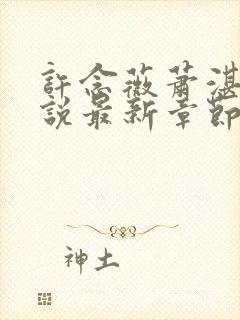 許念薇蕭湛
說最新章節
神土